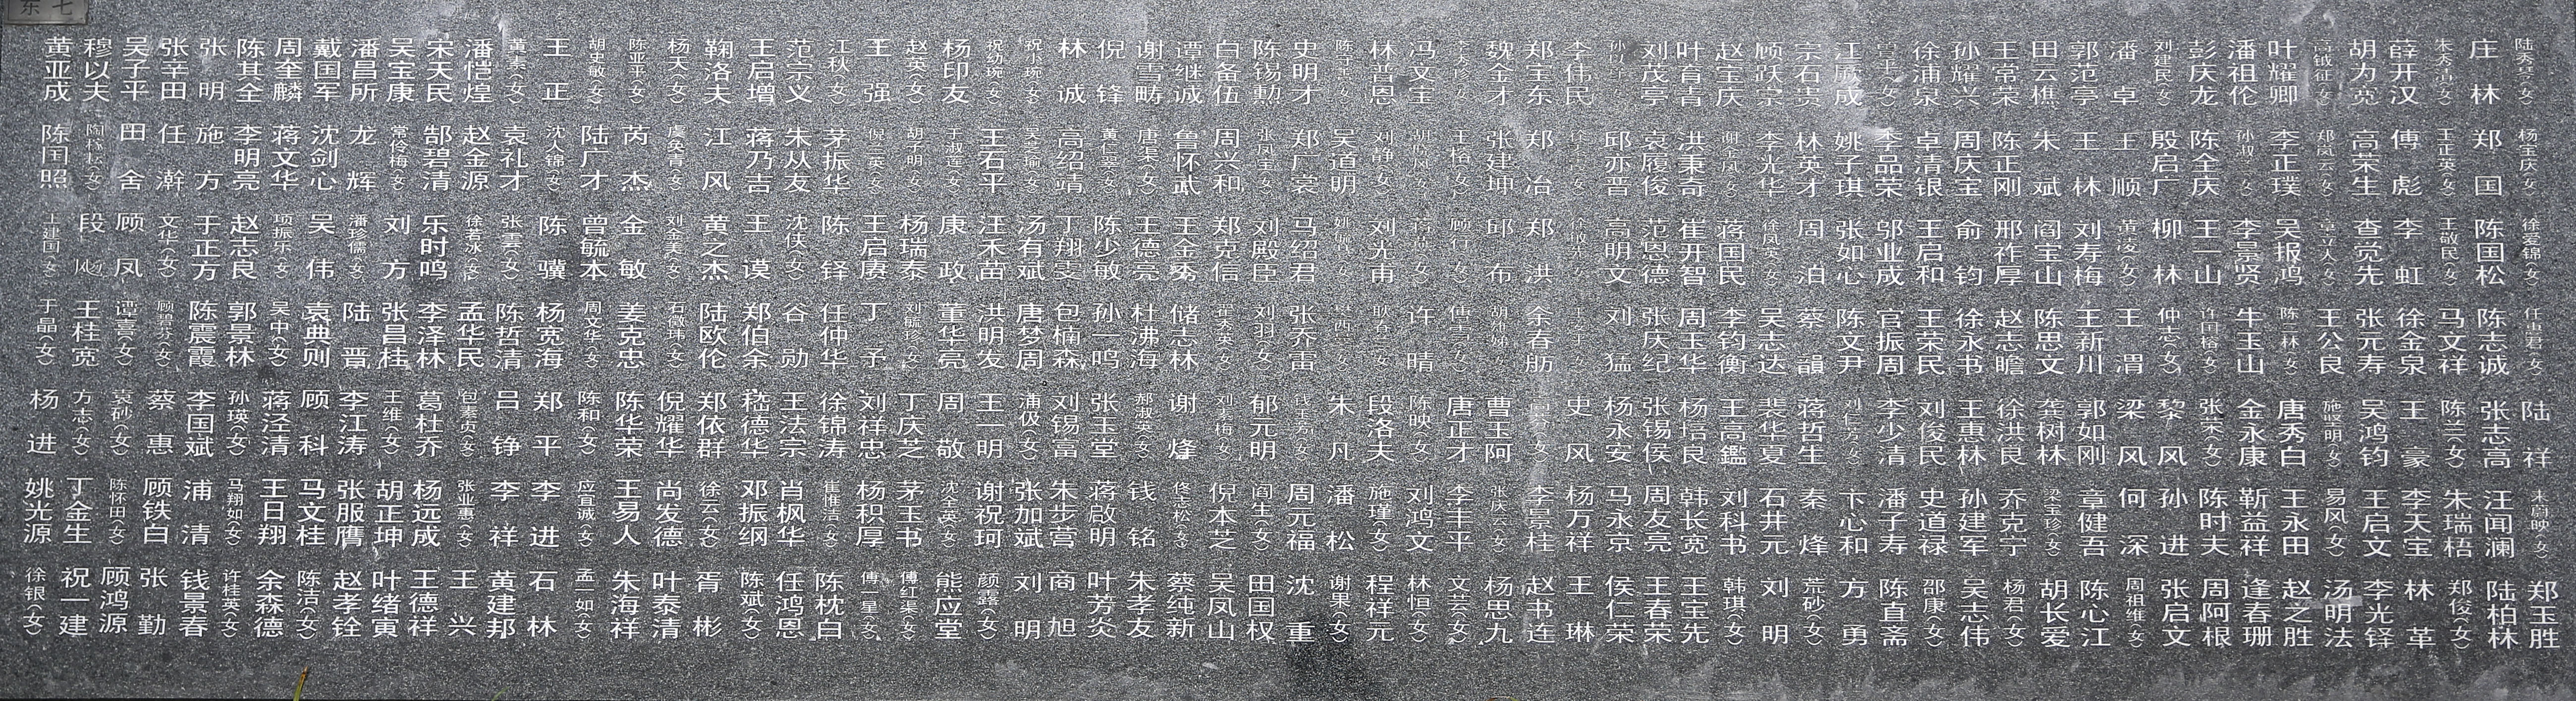 东七
黄亚成 穆以夫 吴子平 张辛田 张明 陈其全 周奎麟 戴国军 潘昌所 吴宝康 宋天民 潘恺煌 黄素(女) 王正 胡史敏(女) 陈亚平(女) 杨天(女) 鞠洛夫 王启增 范宗义 江秋(女) 王强 赵英(女) 杨印友 祝幼琬(女) 祝小琬(女) 林诚 倪锋 谢雪畴 谭继诚 白备伍 陈锡勲 史明才 林普恩 冯文宝 魏金才 郑宝东 李伟民 刘茂亭 叶育青 赵宝庆 顾跃宗 宗石贵 江厥成 徐浦泉 孙耀兴 王常荣 田云樵 郭范亭 潘卓 刘建民(女) 彭庆龙 潘祖伦 叶耀卿 高钺征(女) 胡为克 薛开汉 朱秀清(女) 庄林 陆秀琴(女)
陈国照 田舍 任澣 施方 李明亮 蒋文华 沈剑心 龙辉 常伶梅(女) 郜碧清 赵金源 袁礼才 沈人锦(女) 陆广才 芮杰 虞奂青(女) 江风 蒋乃吉 朱从友 茅振华 倪兰英(女) 胡子明(女) 于淑莲(女) 王石平 吴亭瑜(女) 高绍靖 黄仁爱(女) 唐棠(女) 鲁怀武 周兴和 张凤宝(女) 郑广衮 吴道明 刘静(女) 王榕(女) 张建坤 郑冶 邱亦晋 袁履俊 洪秉奇 谢金凤(女) 李光华 林英才 姚子琪 李品荣 卓清银 周庆宝 陈正刚 朱斌 王林 王顺 殷启广 陈全庆 李正璞 郑凤云(女) 高荣生 傅彪 王正英(女) 郑国 杨宝庆(女)
王建国(女) 段飏 顾凤 文华(女) 于正方 赵志良 项振乐(女) 吴伟 潘珍儒(女) 刘方 乐时鸣 徐若冰(女) 张雲(女) 陈骥 曾毓本 金敏 刘金美(女) 黄之杰 王谟 沈侠(女) 陈铎 王启赓 杨瑞泰 康政 汪禾苗 汤有斌 丁翔雯 陈少敏 王德亮 王金秀 郑克信 刘殿臣 马绍君 刘光甫 顾行(女) 邱布 郑洪 高明文 范恩德 崔开智 蒋国民 徐凤英(女) 周泊 张如心 邬业成 王启和 俞钧 邢祚厚 阎宝山 刘寿梅 黄凌(女) 柳林 王一山 李景贤 吴报鸿 章立人(女) 查觉先 李虹 王敬民(女) 陈国松 徐爱锦(女)
于晶(女) 王桂宽 谭喜(女) 顾碧芬(女) 陈震霞 郭景林 吴中(女) 袁典则 陆晋 张昌桂 李泽林 孟华民 陈哲清 杨宽海 周文华(女) 姜克忠 石微玮(女) 陆欧伦 郑伯余 谷勋 任仲华 丁予 刘毓珍(女) 董华亮 洪明发 唐梦周 包楠森 孙一鸣 杜沸海 储志林 崔秀英(女) 刘羽(女) 张乔雷 耿春(女) 许晴 余春舫 刘猛 张庆纪 周玉华 李钧衡 吴志达 蔡韻 陈文尹 官振周 王荣民 徐永书 赵志瞻 陈思文 王新川 王渭 仲志(女) 许国榕(女) 牛玉山 陈二林(女) 王公良 张元寿 徐金泉 马文祥 陈志诚 任惠君(女)
杨进 方志(女) 袁砂(女) 蔡惠 李国斌 孙瑛(女) 蒋泾清 顾科 李江涛 王维(女) 葛杜乔 包素贞(女) 吕铮 郑平 陈和(女) 陈华荣 倪耀华 郑依群 嵇德华 王法宗 徐锦涛 刘祥忠 丁庆芝 周敬 王一明 浦伋(女) 刘锡富 张玉堂 郝淑英(女) 谢烽 刘素梅(女) 郁元明 钱玉秀(女) 朱凡 段洛夫 陈映(女) 唐正才 曹玉阿 史风 杨永安 张锡侯 杨培良 王高鑑 裴华夏 蒋哲生 刘仁方(女) 李少清 刘俊民 王惠林 徐洪良 龚树林 郭如刚 梁风 黎风 张荣(女) 金永康 唐秀白 施竖明(女) 吴鸿钧 王豪 陈兰(女) 张志高 陆祥
姚光源 丁金生 陈怀田(女) 顾铁白 浦清 马翔如(女) 王日翔 马文桂 张服膺 胡正坤 杨远成 张业惠(女) 李祥 李进 应宣诚(女) 王易人 尚发德 徐云(女) 邓振纲 肖枫华 崔惟洁(女) 杨积厚 茅玉书 沈全英(女) 谢祝珂 张加斌 朱步营 蒋啟明 钱铭 佟志松(女) 倪本芝 阎生(女) 周元福 潘松 施瑾(女) 刘鸿文 李丰平 张庆云(女) 李景桂 杨万祥 马永京 周友亮 韩长宽 刘科书 石井元 秦烽 卞心和 潘子寿 史道禄 孙建军 乔克宁 梁宝珍(女) 章健吾 何深 孙进 陈时夫 靳益祥 王永田 易风(女) 王启文 李天宝 朱瑞梧 汪闻澜 朱蔚映(女)
徐银(女) 祝一建 顾鸿源 张勤 钱景春 许桂英(女) 余森德 陈洁(女) 赵孝铨 叶绪寅 王德祥 王兴 黄建邦 石林 孟一如(女) 朱海祥 叶泰清 胥彬 陈斌(女) 任鸿恩 陈枕白 傅一星(女) 傅红渠(女) 熊应堂 颜露(女) 刘明 商旭 叶芳炎 朱孝友 蔡纯新 吴凤山 田国权 沈重 谢果(女) 程祥元 林恒(女) 文芸(女) 杨思九 赵书连 王琳 侯仁荣 王春荣 王宝先 韩琪(女) 刘明 荒砂(女) 方勇 陈直斋 邵康(女) 吴志伟 杨君(女) 胡长爱 陈心江 周祖维(女) 张启文 周阿根 逢春珊 赵之胜 汤明法 李光铎 林革 郑俊(女) 陆柏林 郑玉胜